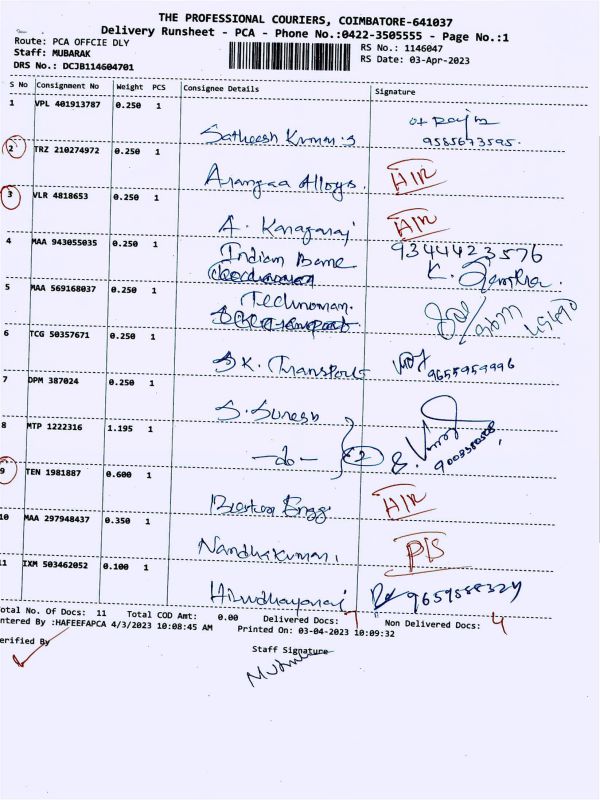 THE PROFESSIONAL COURIERS, COIMBATORE-641037
Delivery Runsheet - PCA - Phone No.:0422-3505555 - Page No.:1
Route: PCA OFFCIE DLY
RS No.: 1146047
Staff: MUBARAK
RS Date: 03-Apr-2023
DRS No.: DCJB114604701
S No Consignment No Weight PCS Consignee Details Signature
1 VPL 401913787 0.250 1
Satheesh Kumar.s 9585673595.
2 TRZ 210274972 0.250 1
Alloys. H/R
3 VLR 4818653 0.250 1
A. Kanagaraj H/R
4 MAA 943055035 0.250 1
Indian 9344423576
K.
5 MAA 569168037 0.250 1
6 TCG 50357671 0.250 1
S K. Transports 9655959996
7 DPM 387024 0.250 1
S. Suresh
8 MTP 1222316 1.195 1
-do- 2
9 TEN 1981887 0.600 1
Engg H/R
10 MAA 297948437 0.350 1
Nandhakumar. P/S
11 IXM 503462052 0.100 1
9659588324
Total No. Of Docs: 11 Total COD Amt: 0.00 Delivered Docs: 7 Non Delivered Docs: 4
ntered By :HAFEEFAPCA 4/3/2023 10:08:45 AM Printed On: 03-04-2023 10:09:32
erified By
Staff Signature